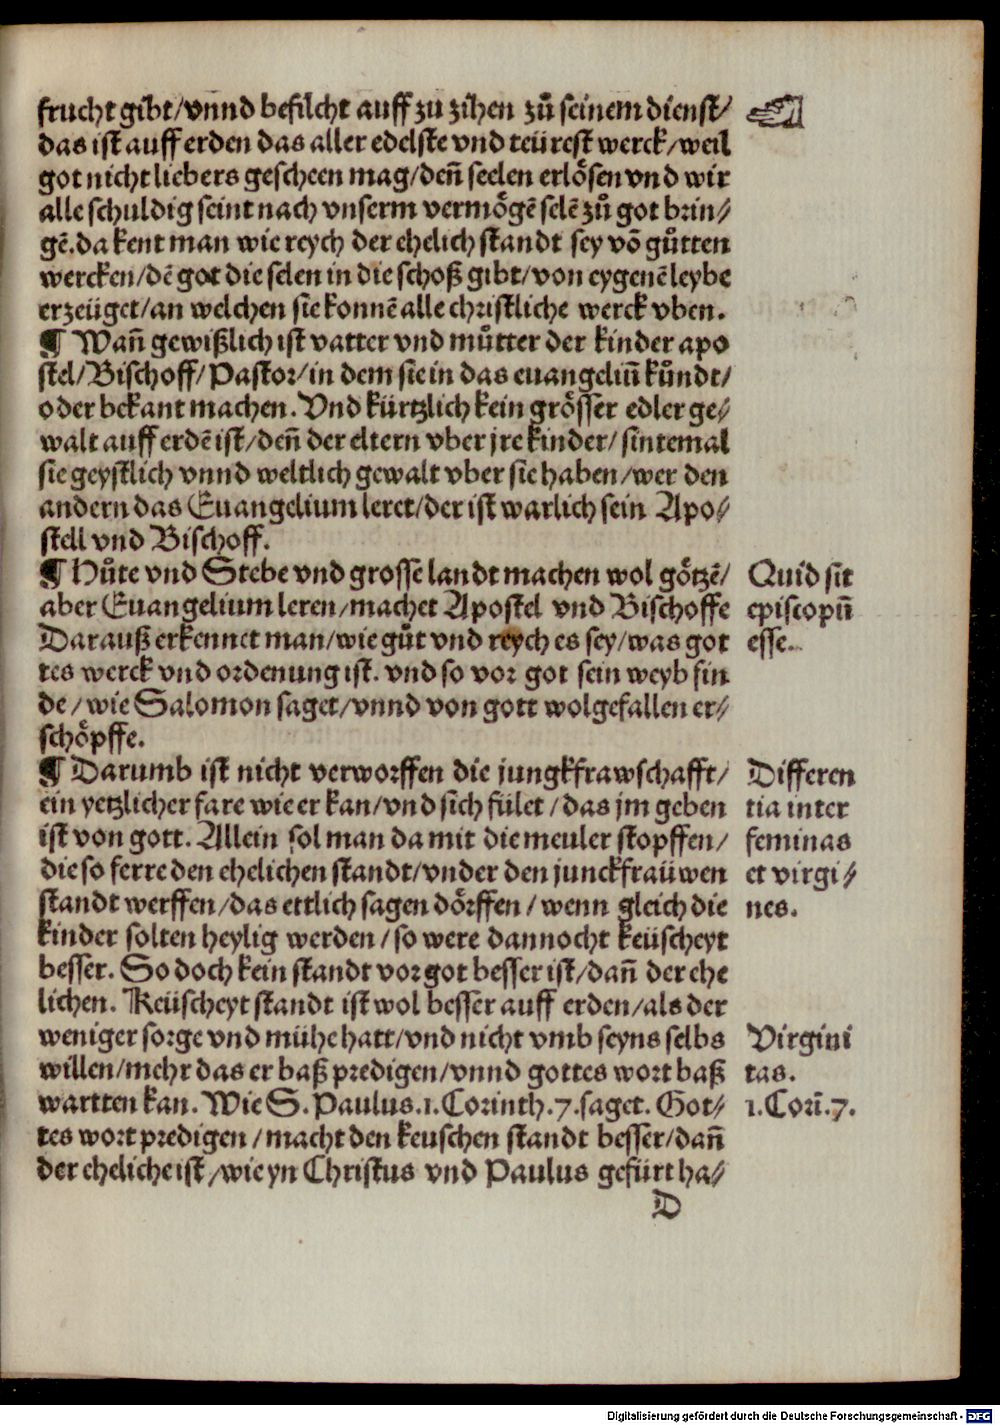 frucht gibt/vnnd befilcht auff zu zihen zů seinem dienst/
das ist auff erden das aller edelste vnd teürest werck/weil
got nicht liebers gescheen mag/deñ seelen erlösen vnd wir
alle schuldig seint nach vnserm vermögē selē zů got brin⸗
gē.da kent man wie reych der ehelich standt sey vō gůtten
wercken/dē got die selen in die schoß gibt/von eygenē leybe
erzeüget/an welchen sie konnē alle christliche werck vben.
¶ Wañ gewißlich ist vatter vnd můtter der kinder apo
stel/Bischoff/Pastor/in dem sie in das euangeliū kůndt/
oder bekant machen. Vnd kürtzlich kein grösser edler ge⸗
walt auff erdē ist/deñ der eltern vber jre kinder/sintemal
sie geystlich vnnd weltlich gewalt vber sie haben/wer den
andern das Euangelium leret/der ist warlich sein Apo⸗
stell vnd Bischoff.
¶ Hůte vnd Stebe vnd grosse landt machen wol götzē/
aber Euangelium leren/machet Apostel vnd Bischoffe
Darauß erkennet man/wie gůt vnd reych es sey/was got
tes werck vnd ordenung ist. vnd so vor got sein weyb fin
de/wie Salomon saget/vnnd von gott wolgefallen er⸗
schöpffe.
¶ Darumb ist nicht verworffen die jungkfrawschafft/
ein yetzlicher fare wie er kan/vnd sich fület/das jm geben
ist von gott. Allein sol man da mit die meuler stopffen/
die so ferre den ehelichen standt/vnder den junckfraüwen
standt werffen/das ettlich sagen dörffen/wenn gleich die
kinder solten heylig werden/so were dannocht keüscheyt
besser. So doch kein standt vor got besser ist/dañ der ehe
lichen. Keüscheyt standt ist wol besser auff erden/als der
weniger sorge vnd mühe hatt/vnd nicht vmb seyns selbs
willen/mehr das er baß predigen/vnnd gottes wort baß
wartten kan. Wie S. Paulus.1.Corinth.7.saget. Got⸗
tes wort predigen/macht den keuschen standt besser/dañ
der eheliche ist/wie yn Christus vnd Paulus gefürt ha⸗
D
Quid sit
episcopū
esse.
Differen
tia inter
feminas
et virgi⸗
nes.
Virgini
tas.
1.Coriñ.7.
Digitalisierung gefördert durch die Deutsche Forschungsgemeinschaft - DFG